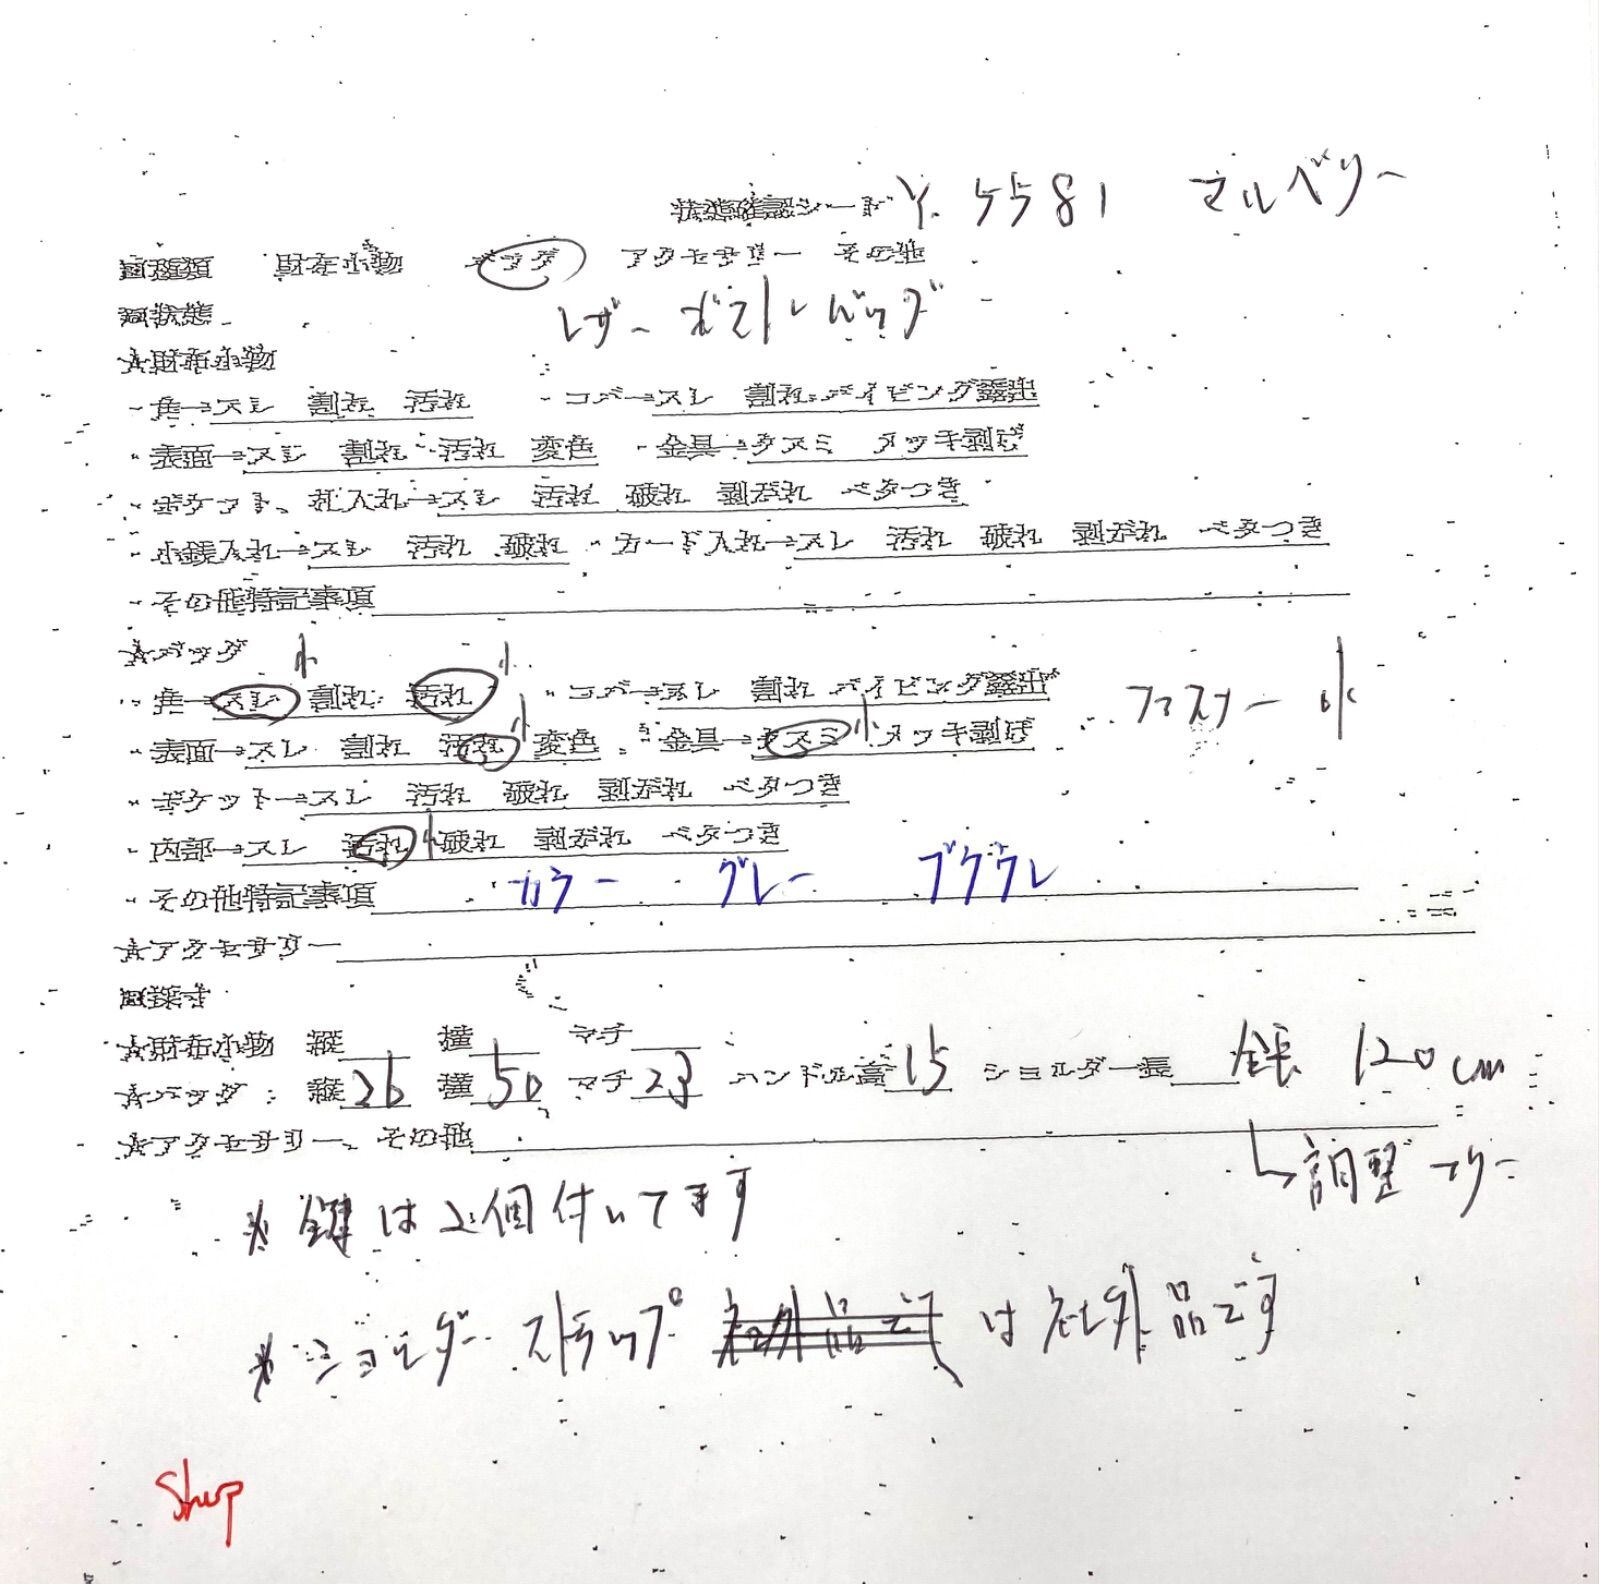 状態確認シート Y. 5581 マルベリー
□種類 財布小物 バッグ アクセサリー その他
□状態 レザー ボストンバッグ
☆財布小物
・角→スレ 割れ 汚れ ・コバ→スレ 割れ パイピング露出
・表面→スレ 割れ 汚れ 変色 ・金具→クスミ メッキ剥げ
・ポケット、札入れ→スレ 汚れ 破れ 剥がれ ベタつき
・小銭入れ→スレ 汚れ 破れ ・カード入れ→スレ 汚れ 破れ 剥がれ ベタつき
・その他特記事項
☆バッグ
小 小
・角→スレ 割れ 汚れ ・コバ→スレ 割れ パイピング露出
小 小 ファスナー 小
・表面→スレ 割れ 汚れ 変色 ・金具→クスミ メッキ剥げ
・ポケット→スレ 汚れ 破れ 剥がれ ベタつき
・内部→スレ 汚れ 小 破れ 剥がれ ベタつき
・その他特記事項 カラー グレー
☆アクセサリー
□採寸
☆財布小物 縦 横 マチ
☆バッグ:縦 26 横 50 マチ 23 ハンドル高 15 ショルダー長 全長 120cm
☆アクセサリー、その他
↳調整フリー
※鍵は2個付いてます
※ショルダーストラップ 社外品で は社外品です